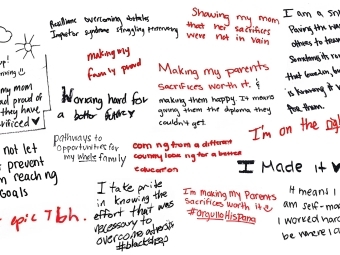 Resilience overcoming obstacles
Impostor syndrome struggling
Showing my mom
that her sacrifices
were not in vain
I am a
Paving the
others to
Sometimes it's
that
is knowing it
for them.
making my
family proud
my mom
proud of
they have
sacrificed ♥
Making my parents
sacrifices worth it. &
making them happy. It means
giving them the diploma they
couldn't get.
Working hard for
a better future
I'm on the
Pathways to
opportunities for
my whole family
coming from a different
country looking for a better
education
not let
prevent
reaching
GOALS
I Made it ♥
epic Tbh.
I take pride
in knowing the
effort that was
necessary to
overcome adversity
#blackdegp
I'm making my Parents
Sacrifices worth it ☺
#OrgulloHispano
It means I
am self-ma
I worked har
be where I a